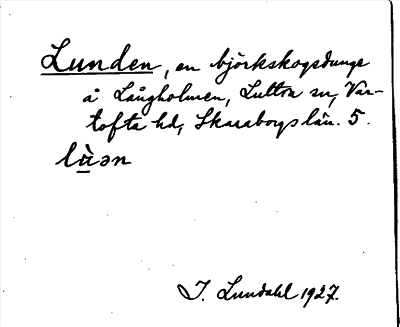 Lunden, en björkskogsdunge
å Långholmen, Luttra sn, Var-
tofta hd, Skaraborgs län. 5.
lù̱ən
I. Lundahl 1927.